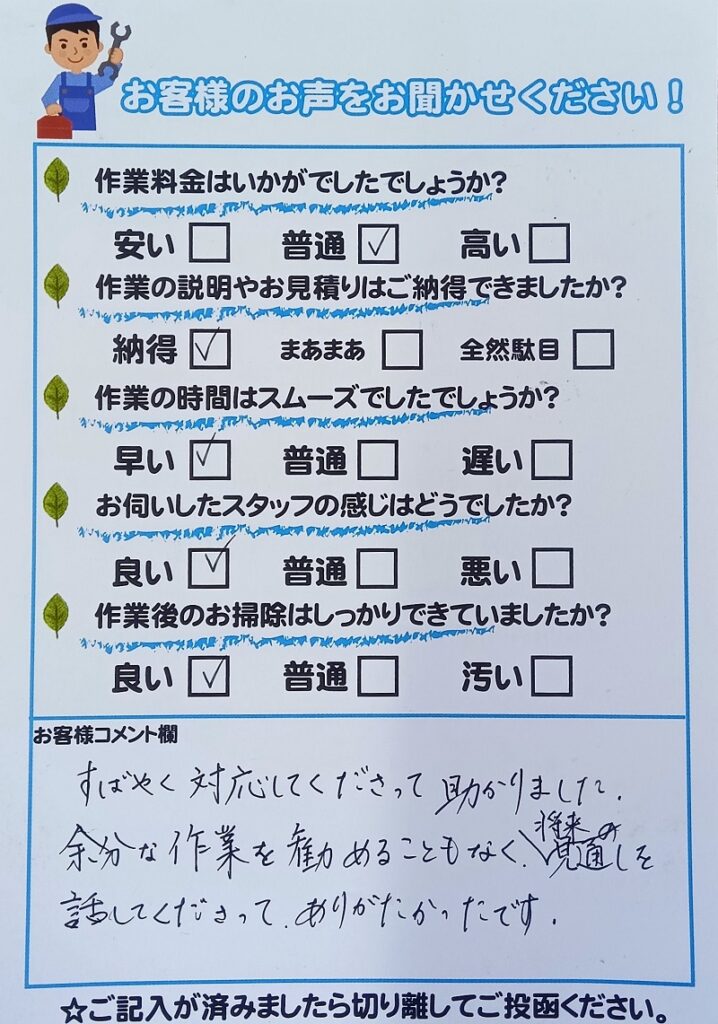 お客様のお声をお聞かせください！
作業料金はいかがでしたでしょうか?
安い □ 普通 ☑ 高い □
作業の説明やお見積りはご納得できましたか?
納得 ☑ まあまあ □ 全然駄目 □
作業の時間はスムーズでしたでしょうか?
早い ☑ 普通 □ 遅い □
お伺いしたスタッフの感じはどうでしたか?
良い ☑ 普通 □ 悪い □
作業後のお掃除はしっかりできていましたか?
良い ☑ 普通 □ 汚い □
お客様コメント欄
すばやく対応してくださって助かりました.
余分な作業を勧めることもなく、将来の見通しを
話してくださって、ありがたかったです.
☆ご記入が済みましたら切り離してご投函ください。